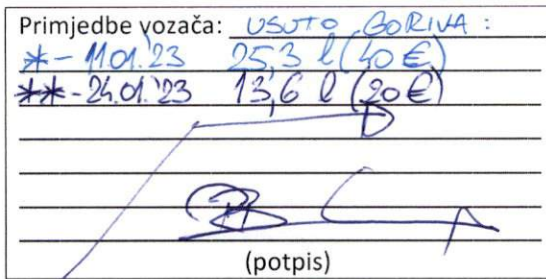 Primjedbe vozača: USUTO GORIVA :
*- 11.01.'23 25,3 l (40 €)
**- 24.01.'23 13,6 l (20 €)
(potpis)